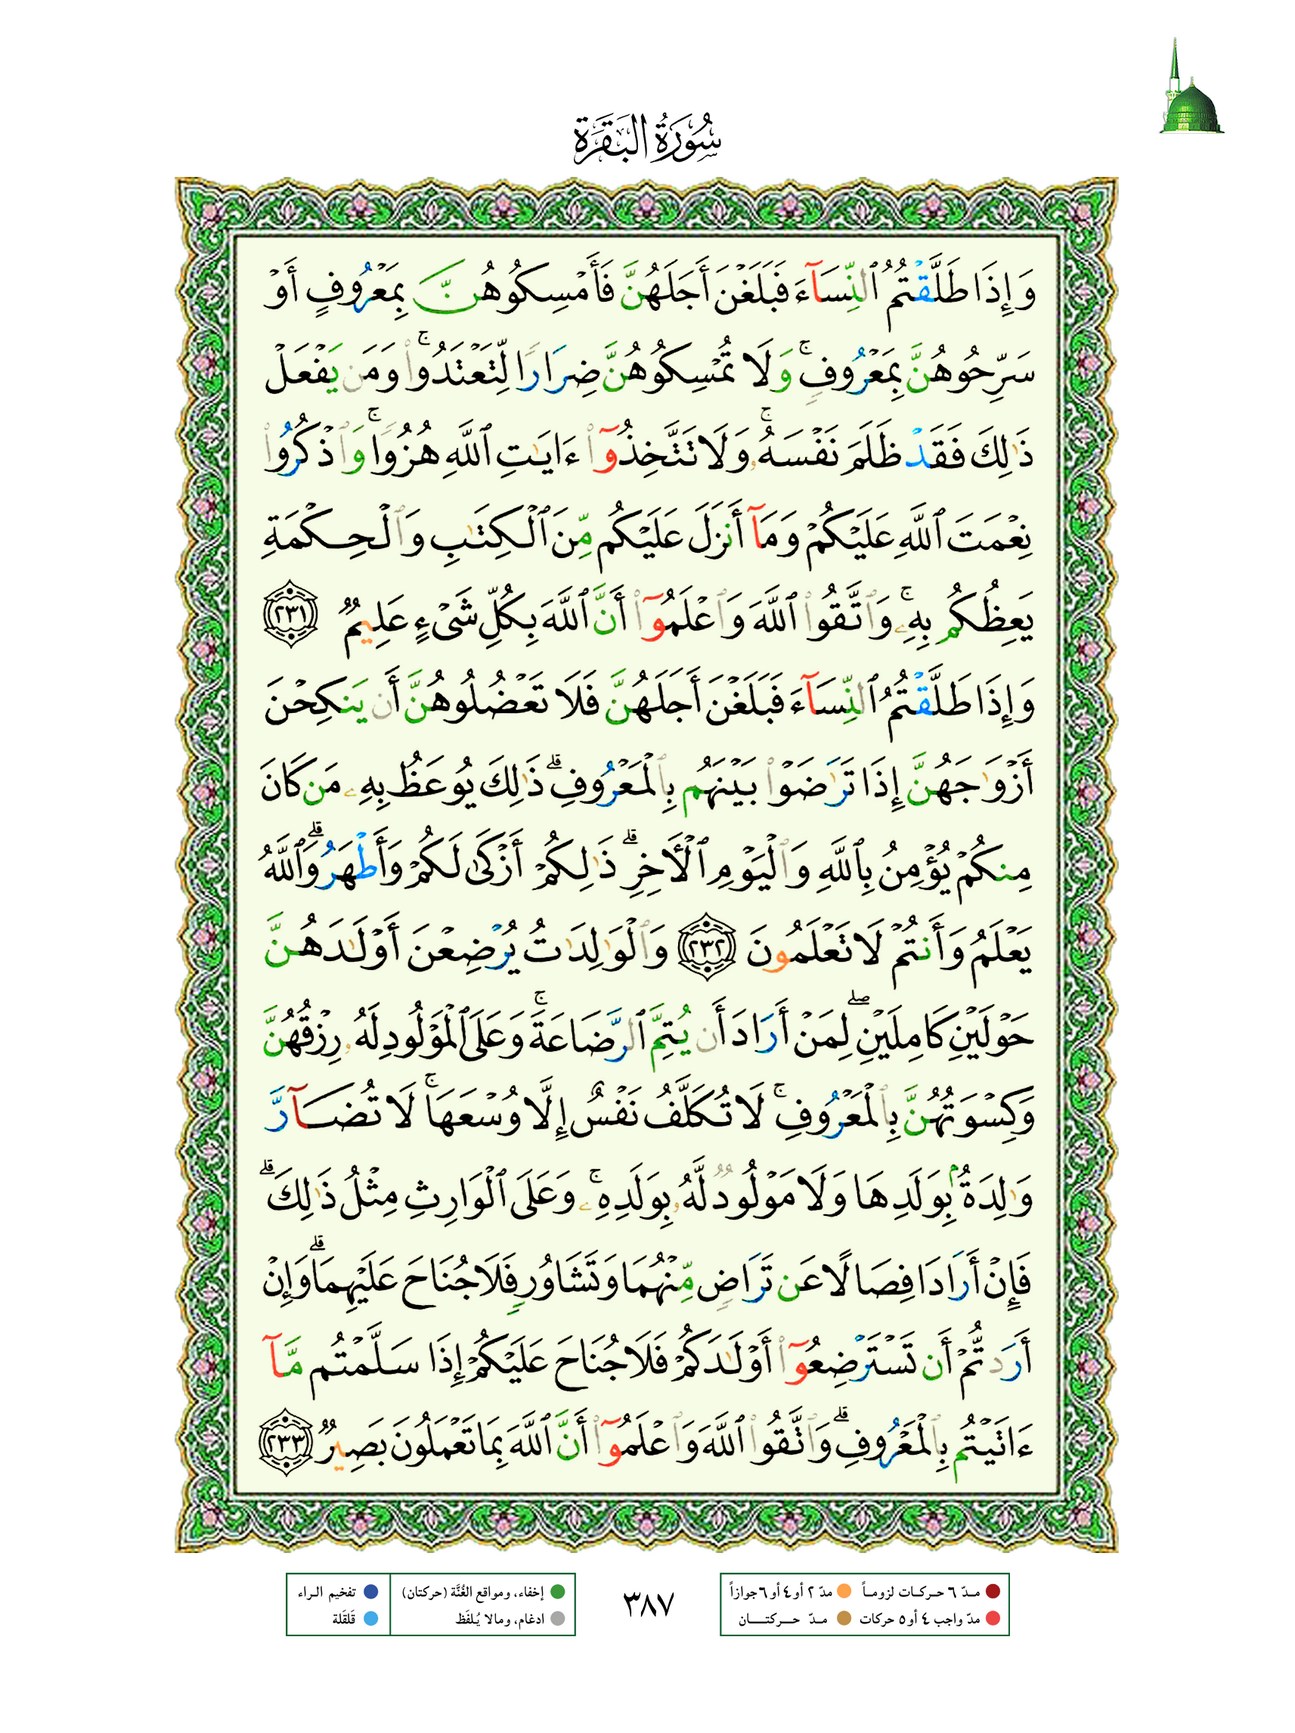 سُورَةُ البَقَرَة
وَإِذَا طَلَّقْتُمُ ٱلنِّسَآءَ فَبَلَغْنَ أَجَلَهُنَّ فَأَمْسِكُوهُنَّ بِمَعْرُوفٍ أَوْ
سَرِّحُوهُنَّ بِمَعْرُوفٍۚ وَلَا تُمْسِكُوهُنَّ ضِرَارًا لِّتَعْتَدُوا۟ۚ وَمَن يَفْعَلْ
ذَٰلِكَ فَقَدْ ظَلَمَ نَفْسَهُۥۚ وَلَا تَتَّخِذُوٓا۟ ءَايَٰتِ ٱللَّهِ هُزُوًاۚ وَٱذْكُرُوا۟
نِعْمَتَ ٱللَّهِ عَلَيْكُمْ وَمَآ أَنزَلَ عَلَيْكُم مِّنَ ٱلْكِتَٰبِ وَٱلْحِكْمَةِ
يَعِظُكُم بِهِۦۚ وَٱتَّقُوا۟ ٱللَّهَ وَٱعْلَمُوٓا۟ أَنَّ ٱللَّهَ بِكُلِّ شَىْءٍ عَلِيمٌ ٢٣١
وَإِذَا طَلَّقْتُمُ ٱلنِّسَآءَ فَبَلَغْنَ أَجَلَهُنَّ فَلَا تَعْضُلُوهُنَّ أَن يَنكِحْنَ
أَزْوَٰجَهُنَّ إِذَا تَرَٰضَوْا۟ بَيْنَهُم بِٱلْمَعْرُوفِۗ ذَٰلِكَ يُوعَظُ بِهِۦ مَن كَانَ
مِنكُمْ يُؤْمِنُ بِٱللَّهِ وَٱلْيَوْمِ ٱلْأَخِرِۗ ذَٰلِكُمْ أَزْكَىٰ لَكُمْ وَأَطْهَرُۗ وَٱللَّهُ
يَعْلَمُ وَأَنتُمْ لَا تَعْلَمُونَ ٢٣٢ وَٱلْوَٰلِدَٰتُ يُرْضِعْنَ أَوْلَٰدَهُنَّ
حَوْلَيْنِ كَامِلَيْنِۖ لِمَنْ أَرَادَ أَن يُتِمَّ ٱلرَّضَاعَةَۚ وَعَلَى ٱلْمَوْلُودِ لَهُۥ رِزْقُهُنَّ
وَكِسْوَتُهُنَّ بِٱلْمَعْرُوفِۚ لَا تُكَلَّفُ نَفْسٌ إِلَّا وُسْعَهَاۚ لَا تُضَآرَّ
وَٰلِدَةٌۢ بِوَلَدِهَا وَلَا مَوْلُودٌ لَّهُۥ بِوَلَدِهِۦۚ وَعَلَى ٱلْوَارِثِ مِثْلُ ذَٰلِكَۗ
فَإِنْ أَرَادَا فِصَالًا عَن تَرَاضٍ مِّنْهُمَا وَتَشَاوُرٍ فَلَا جُنَاحَ عَلَيْهِمَاۗ وَإِنْ
أَرَدتُّمْ أَن تَسْتَرْضِعُوٓا۟ أَوْلَٰدَكُمْ فَلَا جُنَاحَ عَلَيْكُمْ إِذَا سَلَّمْتُم مَّآ
ءَاتَيْتُم بِٱلْمَعْرُوفِۗ وَٱتَّقُوا۟ ٱللَّهَ وَٱعْلَمُوٓا۟ أَنَّ ٱللَّهَ بِمَا تَعْمَلُونَ بَصِيرٌ ٢٣٣
مـدّ ٦ حـركـات لزومـاً مدّ ٢ أو ٤ أو ٦ جوازاً
مدّ واجب ٤ أو ٥ حركات مـدّ حـــركتـــــان
٣٨٧
إخفاء، ومواقع الغُنَّة (حركتان) تفخيم الـراء
ادغام، ومالا يُـلفَظ قَلقَلة